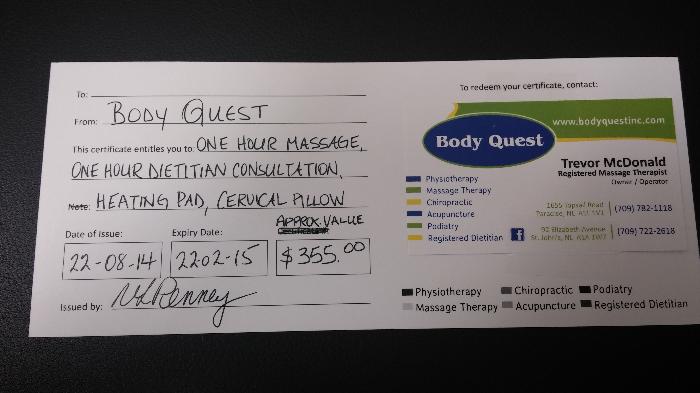 To:
From: BODY QUEST
This certificate entitles you to: ONE HOUR MASSAGE,
ONE HOUR DIETITIAN CONSULTATION,
Note: HEATING PAD, CERVICAL PILLOW
APPROX. VALUE
Date of Issue: Expiry Date:
22-08-14 22 02-15 $355.00
Issued by:
To redeem your certificate, contact:
www.bodyquestinc.com
Body Quest
Trevor McDonald
Registered Massage Therapist
Owner / Operator
Physiotherapy
Massage Therapy
Chiropractic
Acupuncture
Podiatry
Registered Dietitian
1655 Topsail Road
Paradise, NL A1L 1V1 (709) 782-1118
92 Elizabeth Avenue
St. John's, NL A1A 1W7 (709) 722-2618
Physiotherapy Chiropractic Podiatry
Massage Therapy Acupuncture Registered Dietitian